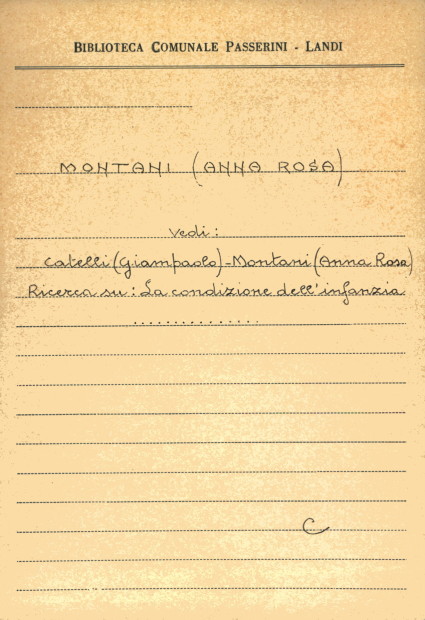 BIBLIOTECA COMUNALE PASSERINI - LANDI
MONTANI (ANNA ROSA)
Vedi:
Catelli (Giampaolo) - Montani (Anna Rosa)
Ricerca su: La condizione dell'infanzia
..............
C